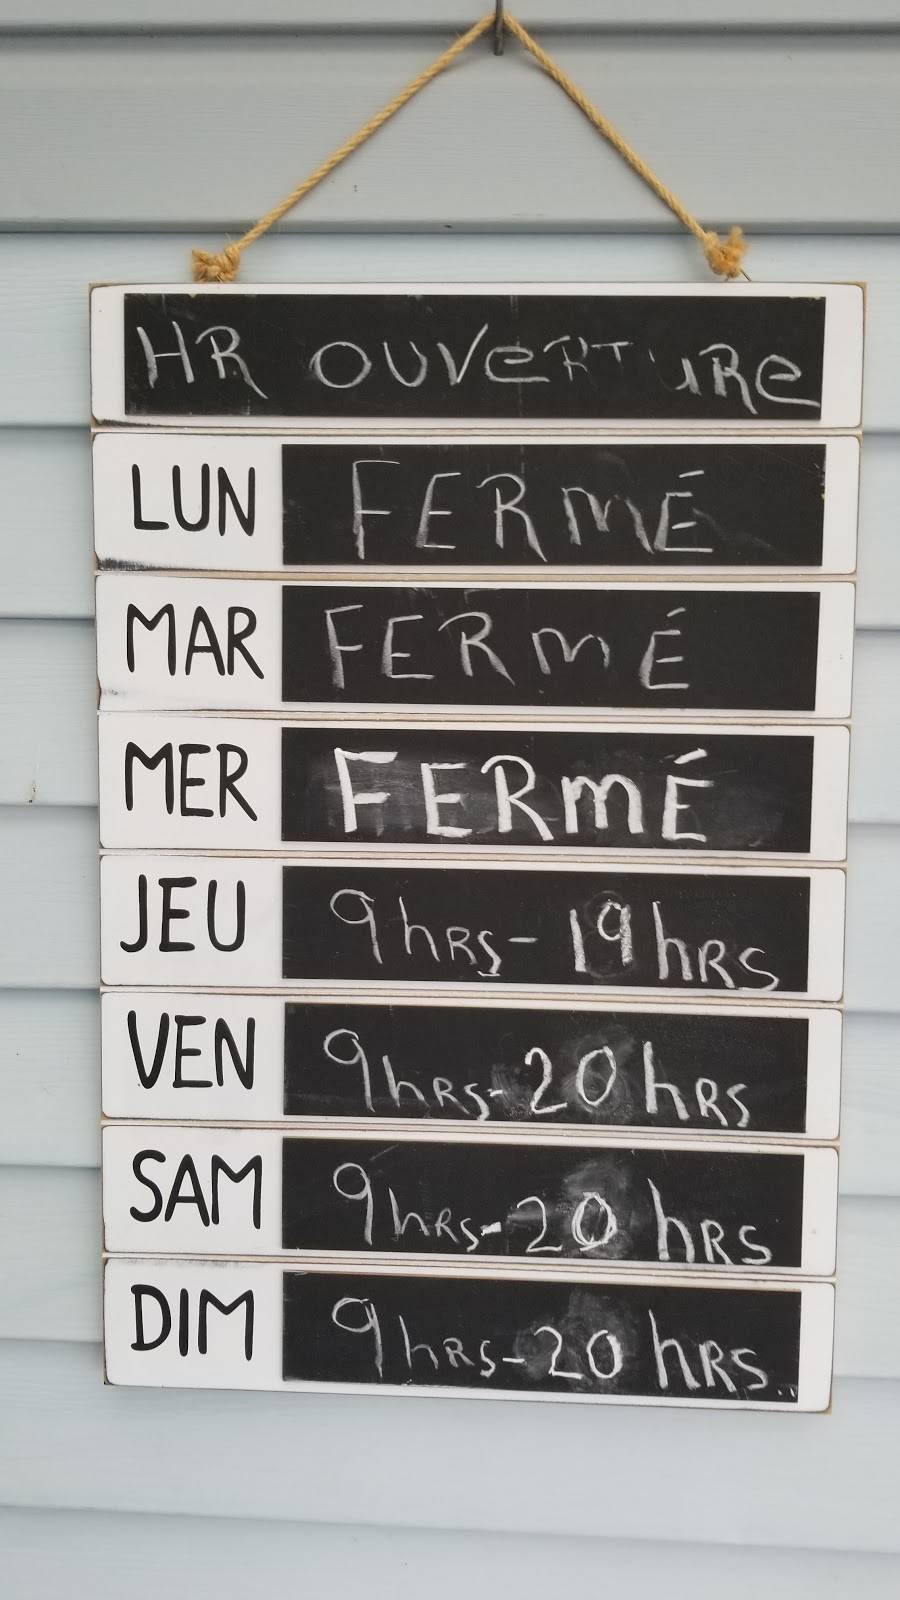 HR OUVeRTURe
LUN FERMÉ
MAR FERMÉ
MER FERMÉ
JEU 9hRS-19hRS
VEN 9hRS-20hRS
SAM 9hRS-20hRS
DIM 9hRS-20hRS..